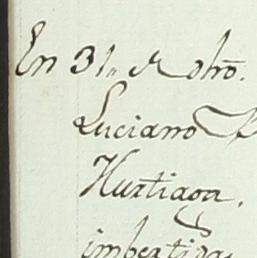 En 31 " de dho.
Luciano
Hurtiaga.
imbertida